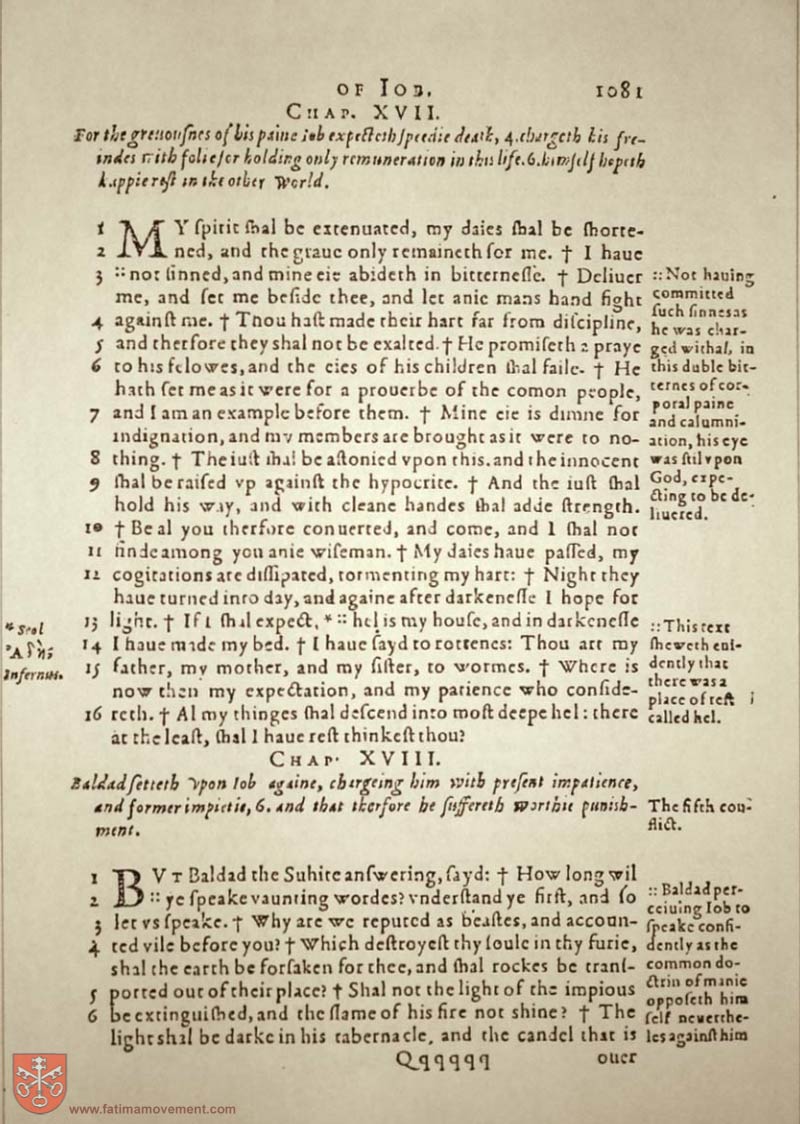 OF IOB. 1081
CHAP. XVII.
For the greuousnes of his paine Iob expecteth speedie death, 4. chargeth his fre-
indes with folie for holding only remuneration in this life. 6. himself hopeth
happie rest in the other world.
1 MY spirit shal be extenuated, my daies shal be shorte-
2 ned, and the graue only remaineth for me. † I haue
3 :: not sinned, and mine eie abideth in bitternesse. † Deliuer
me, and set me beside thee, and let anie mans hand fight
4 against me. † Thou hast made their hart far from discipline,
5 and therfore they shal not be exalted. † He promiseth a praye
6 to his felowes, and the eies of his children shal faile. † He
hath set me as it were for a prouerbe of the comon people,
7 and I am an example before them. † Mine eie is dimne for
indignation, and my members are brought as it were to no-
8 thing. † The iust shal be astonied vpon this. and the innocent
9 shal be raised vp against the hypocrite. † And the iust shal
hold his way, and with cleane handes shal adde strength.
10 † Be al you therfore conuerted, and come, and I shal not
11 finde among you anie wiseman. † My daies haue passed, my
12 cogitations are dissipated, tormenting my hart: † Night they
haue turned into day, and againe after darkenesse I hope for
13 light. † If I shal expect, * :: hel is my house, and in darkenesse
14 I haue made my bed. † I haue sayd to rottenes: Thou art my
15 father, my mother, and my sister, to wormes. † Where is
now then my expectation, and my patience who conside-
16 reth. † Al my thinges shal descend into most deepe hel: there
at the least, shal I haue rest thinkest thou?
:: Not hauing
committed
such sinnes as
he was char-
ged withal, in
this duble bit-
ternes of cor-
poral paine
and calumni-
ation, his eye
was stil vpon
God, expe-
cting to be de-
liuered.
* Seol
Infernus.
:: This text
sheweth eui-
dently that
there was a
place of rest
called hel.
CHAP. XVIII.
Baldad setteth vpon Iob againe, chargeing him with present impatience,
and former impietie, 6. and that therfore he suffereth worthie punish-
ment.
The fifth con-
flict.
1 BVT Baldad the Suhite answering, sayd: † How long wil
2 :: ye speake vaunting wordes? vnderstand ye first, and so
3 let vs speake. † Why are we reputed as beastes, and accoun-
4 ted vile before you? † Which destroyest thy soule in thy furie,
shal the earth be forsaken for thee, and shal rockes be trans-
5 ported out of their place? † Shal not the light of the impious
6 be extinguished, and the flame of his fire not shine? † The
light shal be darke in his tabernacle, and the candel that is
:: Baldad per-
ceiuing Iob to
speake confi-
dently as the
common do-
ctrin of manie
opposeth him
self neuerthe-
les against him
Qqqqqq ouer
www.fatimamovement.com